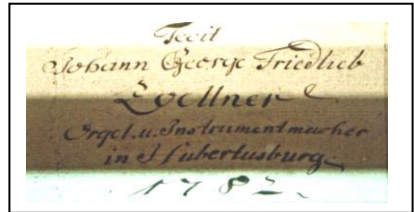 Fecit
Johann George Friedlieb
Zoellner
Orgel. u. Instrumentmacher
in Hubertusburg
1782.